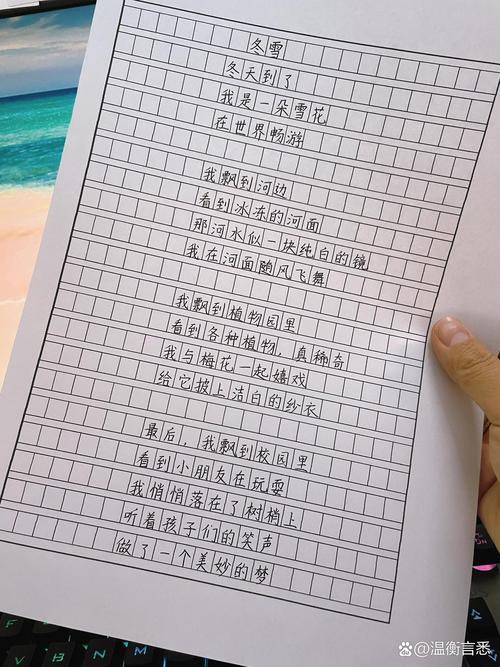 冬雪
冬天到了
我是一朵雪花
在世界畅游
我飘到河边
看到冰冻的河面
那河水似一块纯白的镜
我在河面随风飞舞
我飘到植物园里
看到各种植物，真稀奇
我与梅花一起嬉戏
给它披上洁白的纱衣
最后，我飘到校园里
看到小朋友在玩耍
我悄悄落在了树梢上
听着孩子们的笑声
做了一个美妙的梦
@温衡言悉